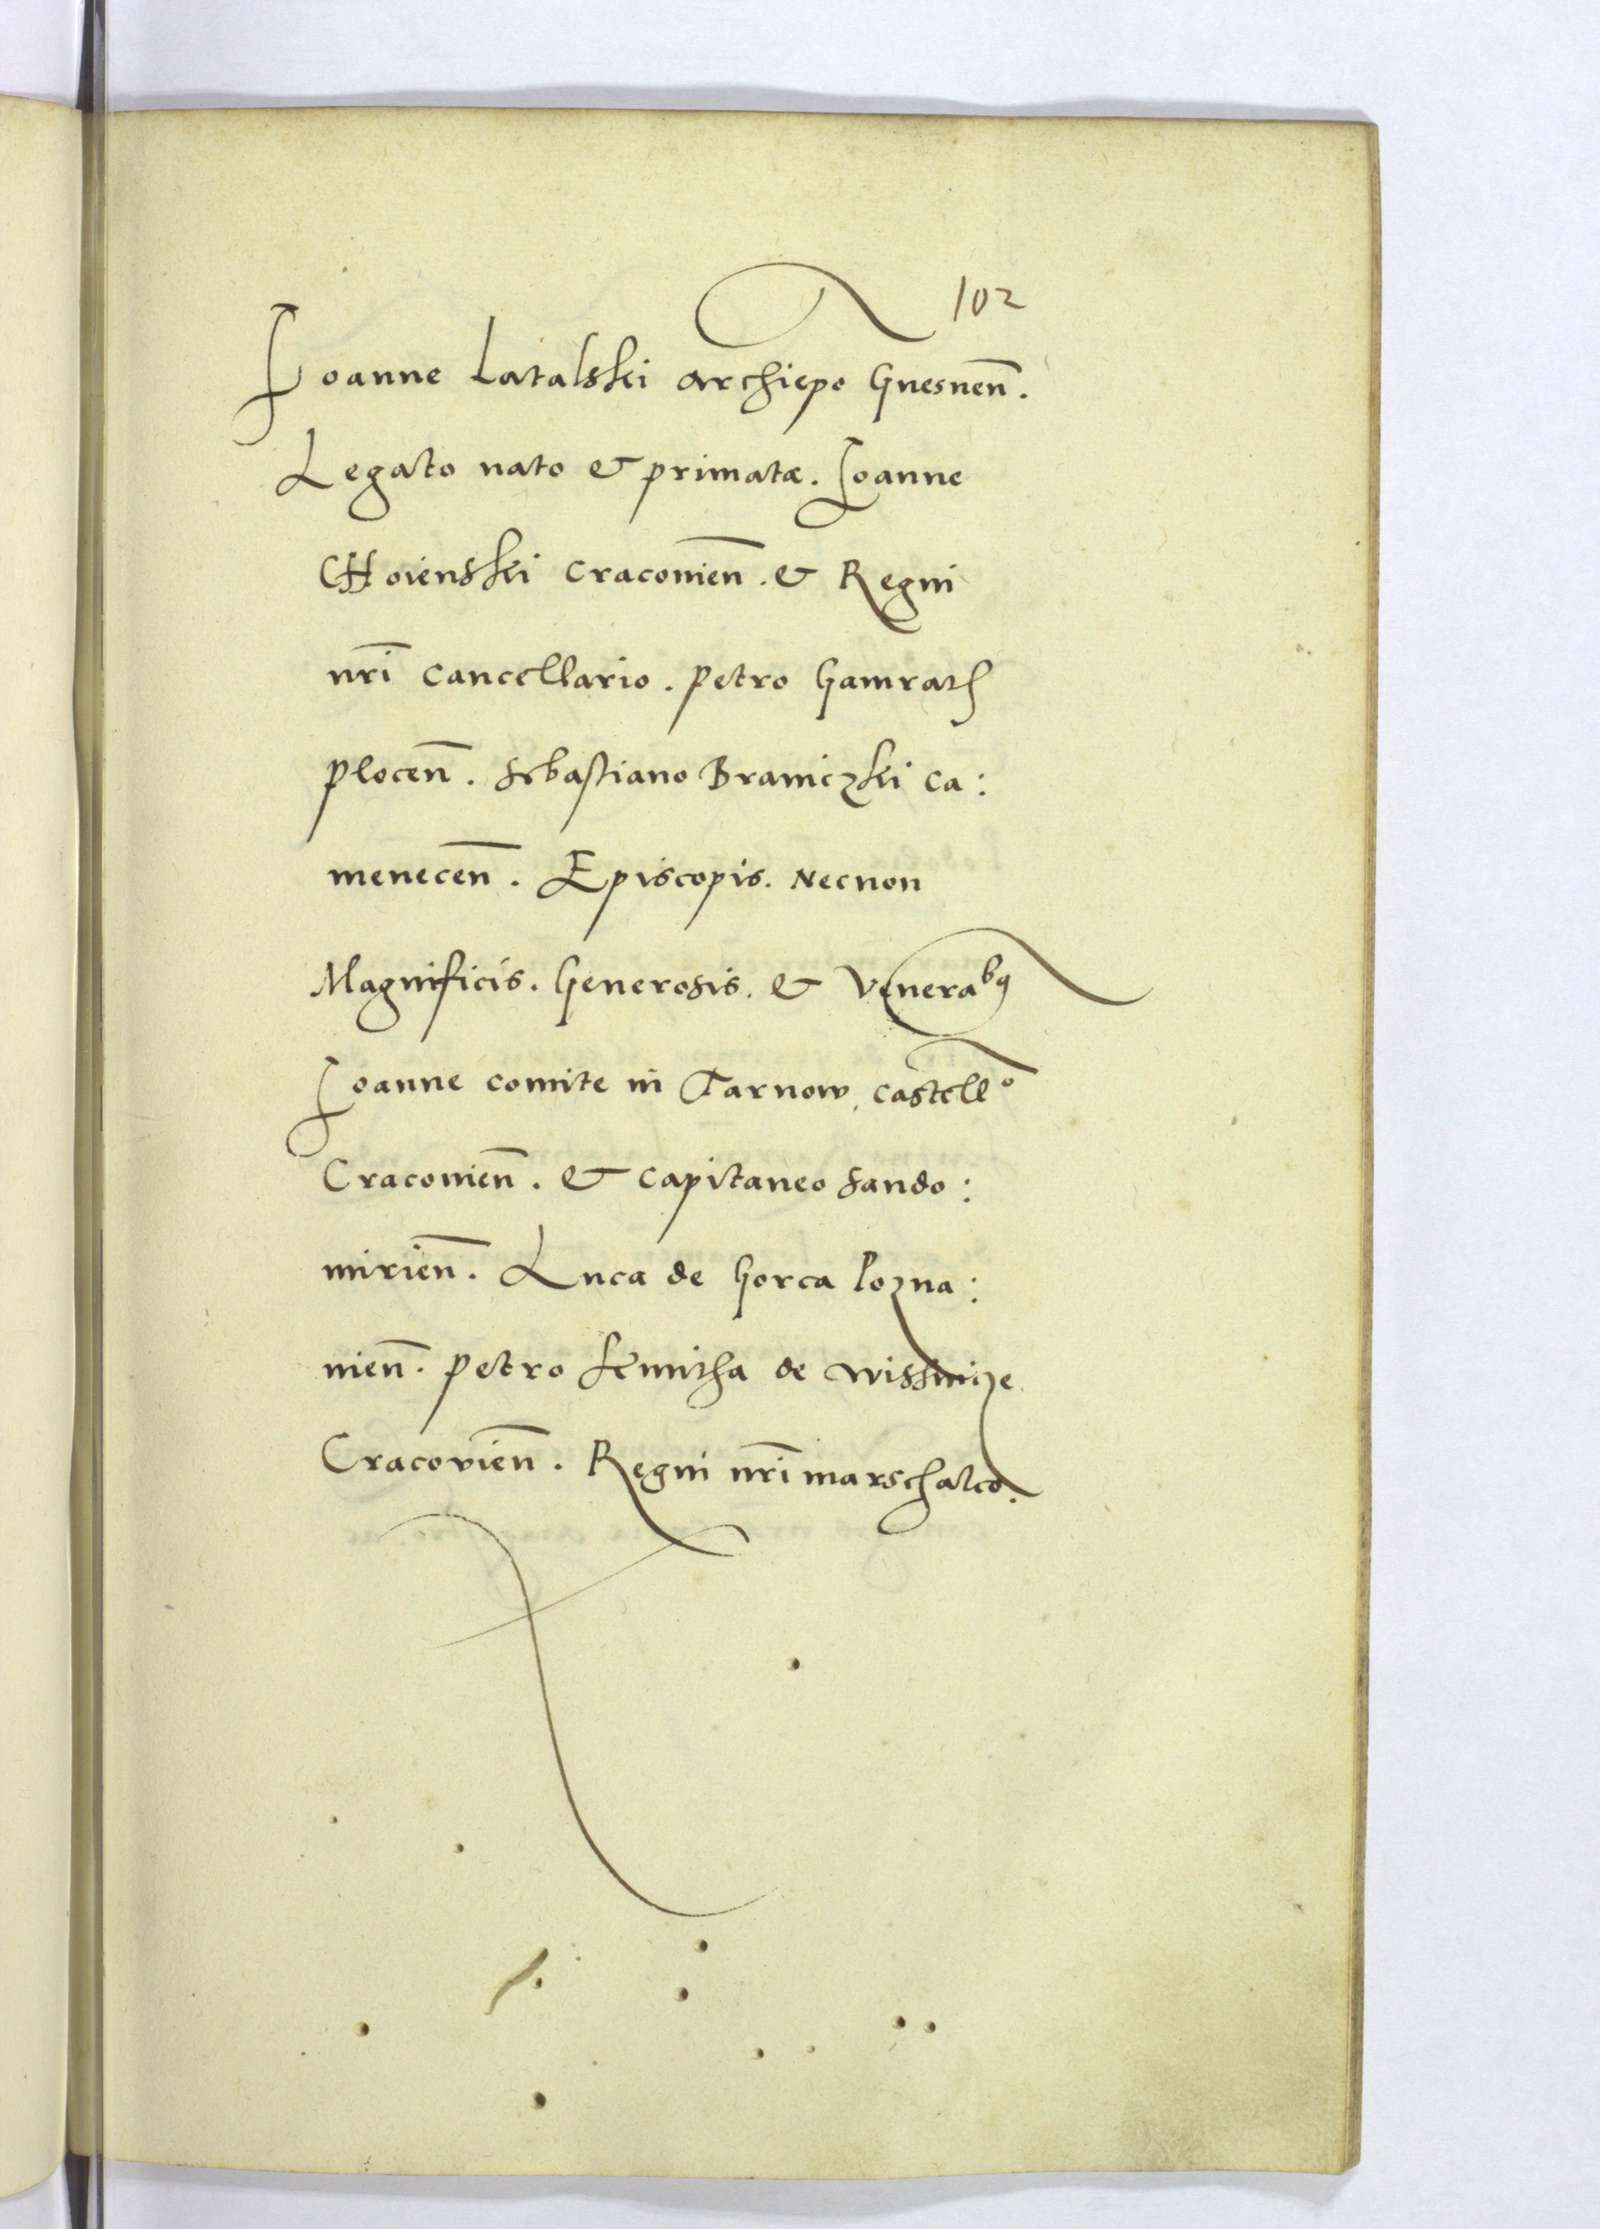 102
Ioanne Latalski archiepo Gnesnen̄.
Legato nato & primatæ. Ioanne
CHoienski Cracouien̄. & Regni
nr̄i Cancellario. petro Gamrath
plocen̄. Sebastiano Braniczki Ca:
menecen̄. Episcopis. Necnon
Magnificis. Generosis. & Venerabꝰ
Ioanne comite in Tarnow, Castell̄o
Cracouien̄. & Capitaneo Sando:
mirien̄. Luca de Gorca pozna:
nien̄. petro kmitha de wissnicze
Cracovien̄. Regni nr̄i marschalco.